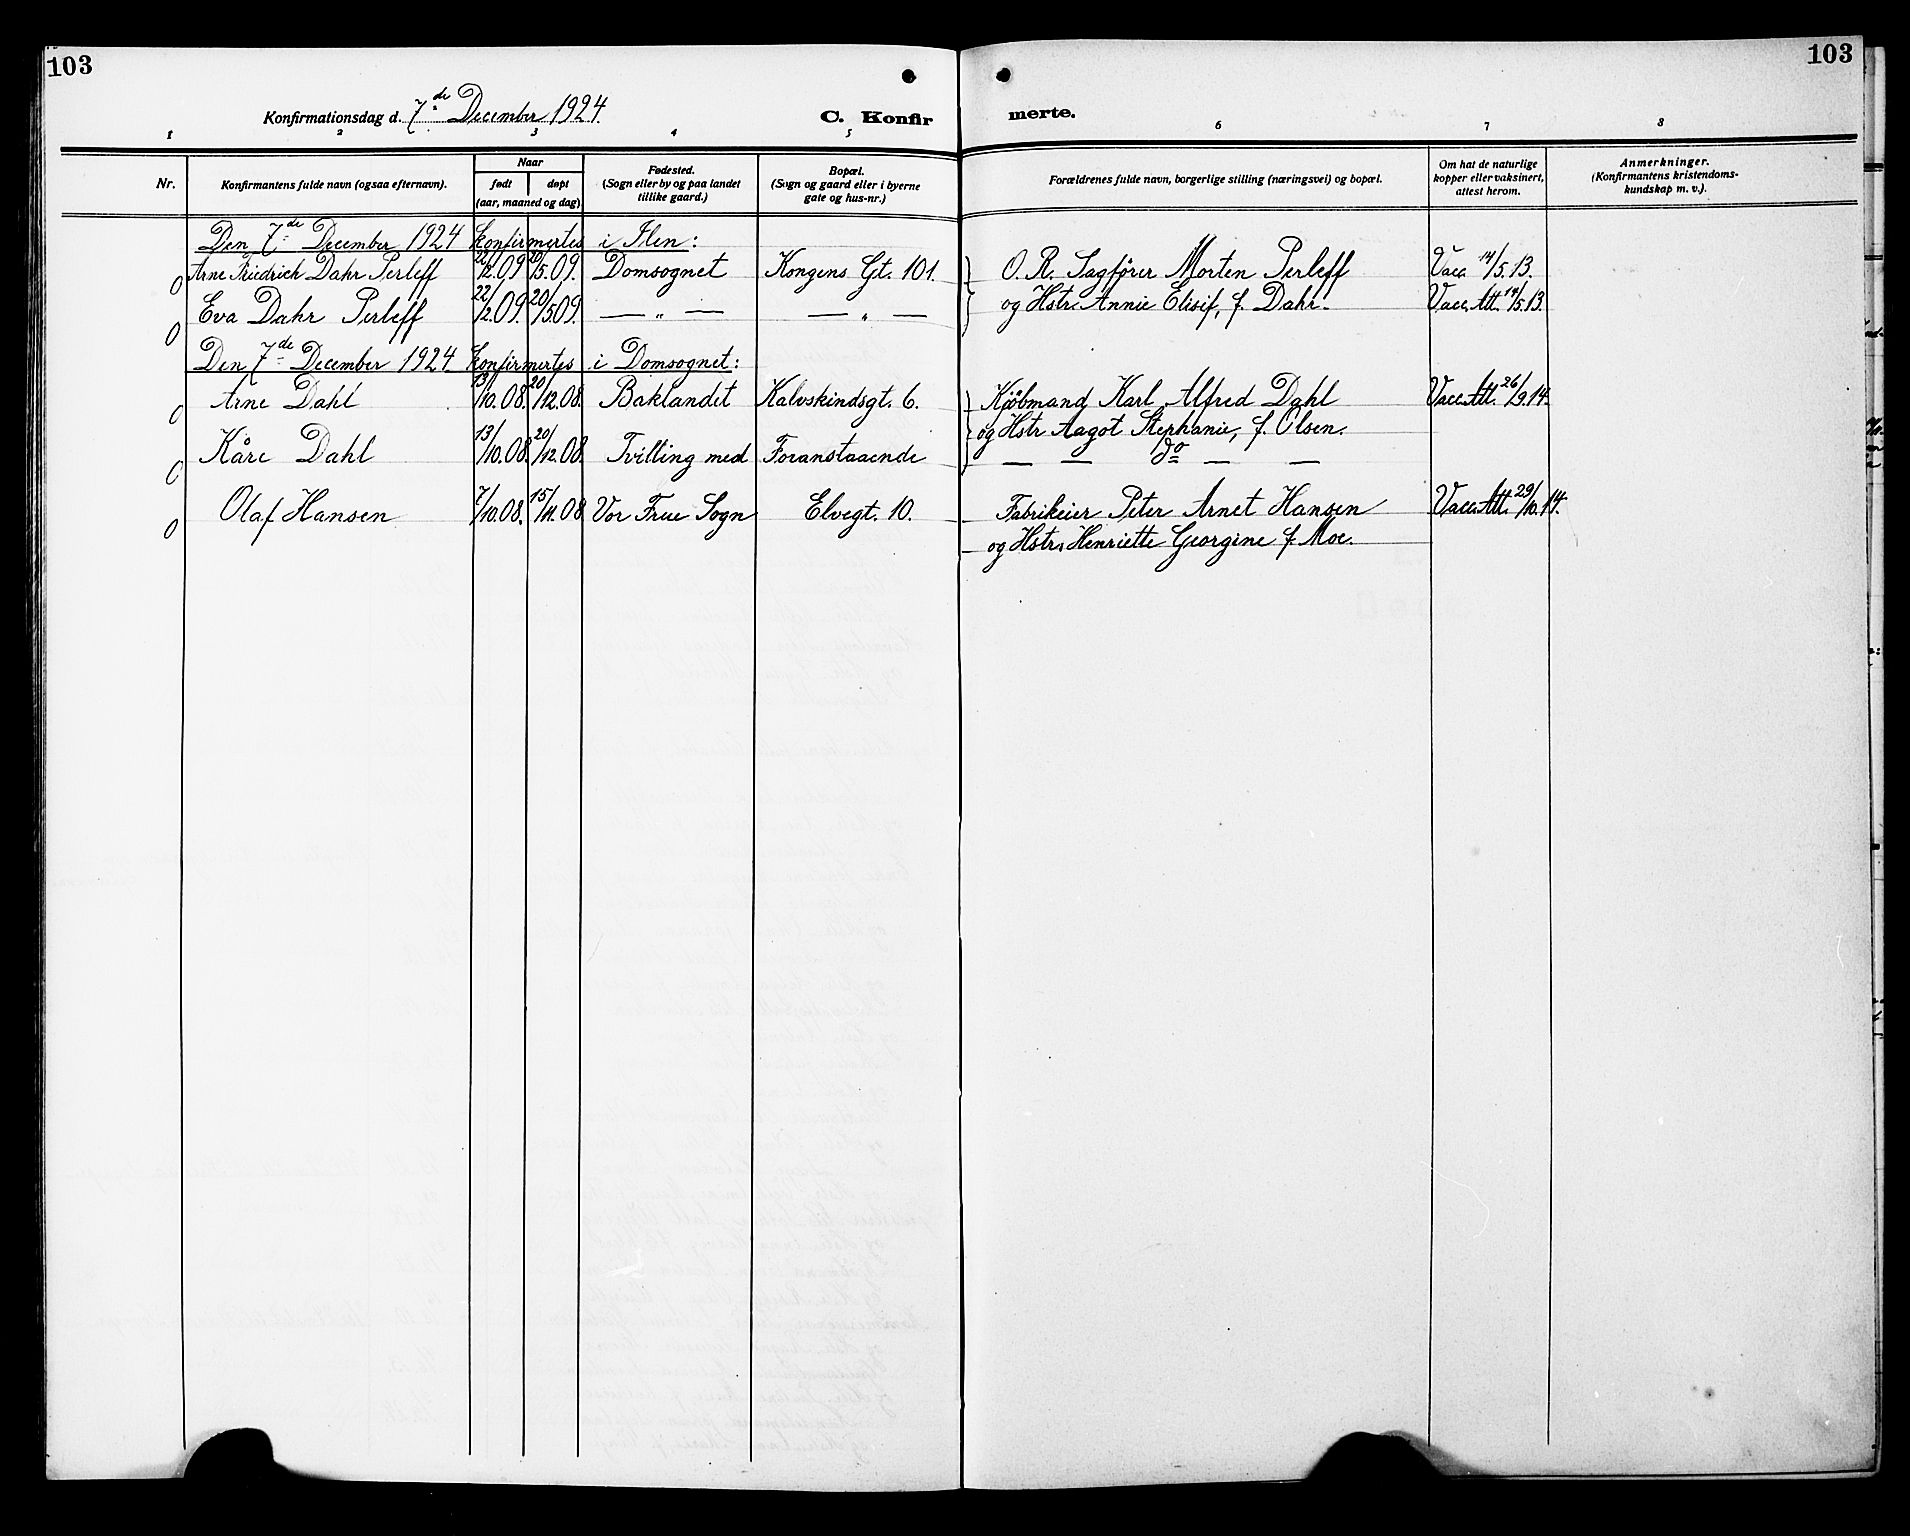 103
103
Konfirmationsdag d. 7de December 1924.
C. Konfirmerte.
1 2 3 4 5 6 7 8
Nr.
Konfirmantens fulde navn (ogsaa efternavn).
Naar
født
døpt
(aar, maaned og dag)
Fødested.
(Sogn eller by og paa landet
tillike gaard.)
Bopæl.
(Sogn og gaard eller i byerne
gate og hus-nr.)
Forældrenes fulde navn, borgerlige stilling (næringsvei) og bopæl.
Om hat de naturlige
kopper eller vaksinert,
attest herom.
Anmerkninger.
(Konfirmantens kristendoms-
kundskap m. v.).
Den 7de December 1924 konfirmertes i Ilen:
0 Arne Friedrich Dahr Perleff 22/2.09 20/5.09. Domsognet Kongens Gt. 101. O. R. Sagfører Morten Perleff Vacc. 14/5.13.
0 Eva Dahr Perleff 22/2.09. 20/5.09. — „ — — „ — og Hstr. Annie Elisif, f. Dahr. Vacc. Att. 14/5.13.
Den 7de December 1924 konfirmertes i Domsognet:
0 Arne Dahl 13/10.08. 20/12.08. Baklandet Kalvskindsgt. 6. Kjøbmand Karl Alfred Dahl Vacc. Att. 26/9.14.
og Hstr Aagot Stephanie, f. Olsen.
0 Kåre Dahl 13/10.08. 20/12.08. Tvilling med Foranstaaende — — do — —
0 Olaf Hansen 7/10.08. 15/11.08 Vor Frue Sogn Elvegt. 10. Fabrikeier Peter Arnet Hansen Vacc. Att. 29/10.14.
og Hstr. Henriette Georgine f. Moe.